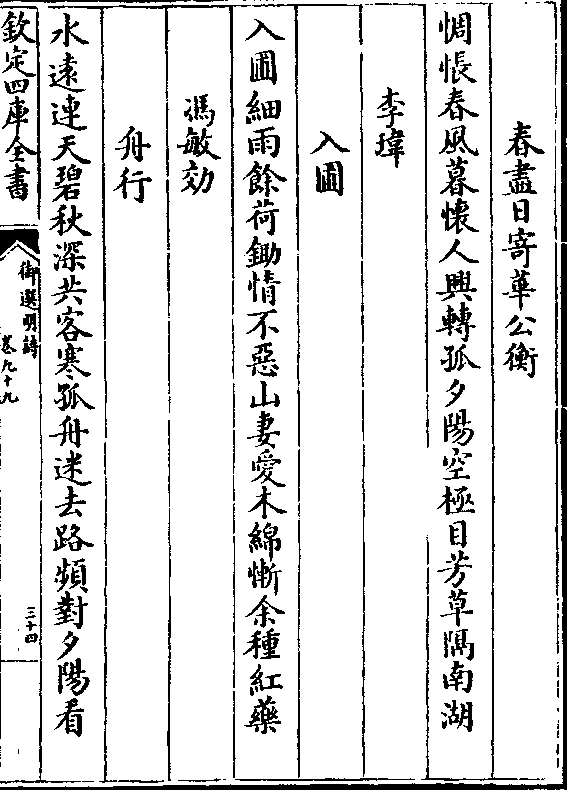 春盡日寄華公衡
惆悵春風暮懷人興轉孤夕陽空極目芳草隔南湖
李瑋
入圃
入圃細雨餘荷鋤情不惡山妻愛木綿慚余種紅藥
馮敏効
舟行
水遠連天碧秋深共客寒孤舟迷去路頻對夕陽看
欽定四庫全書
御選明詩
卷九十九
三十四